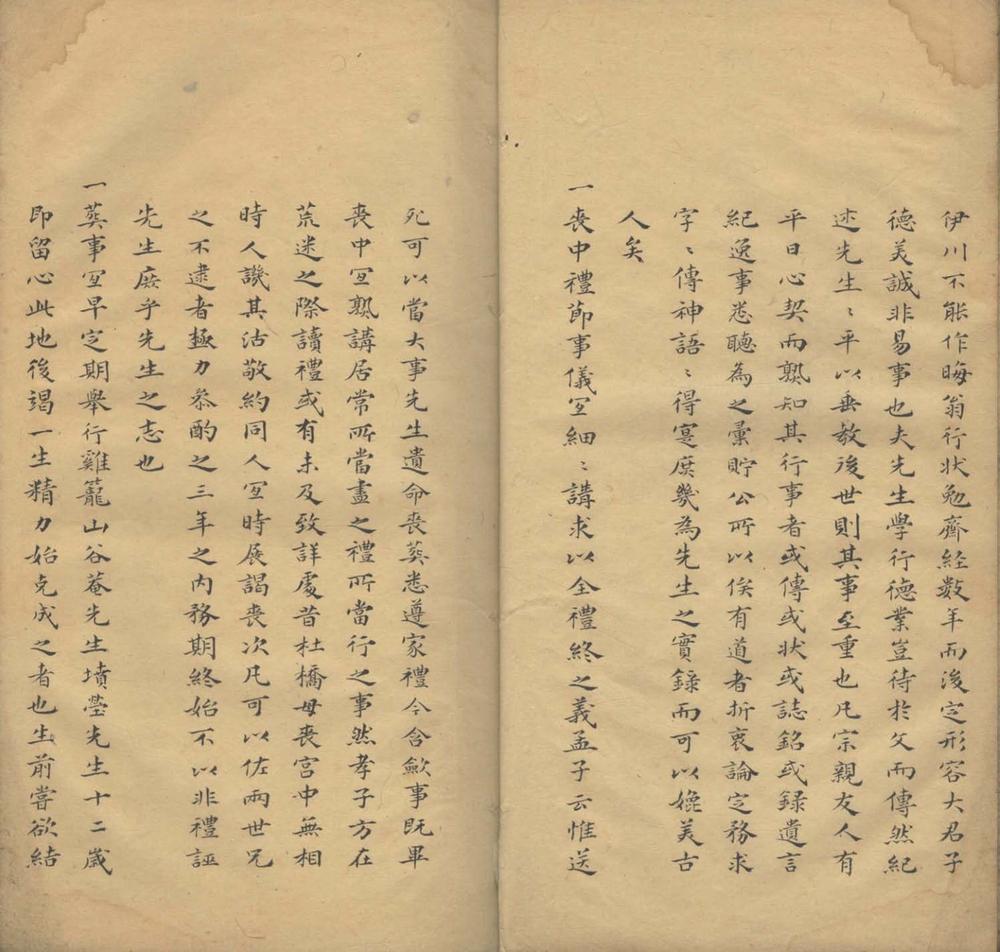 伊川不能作晦翁行状勉齋経数年而後定形容大君子
德美誠非易事也夫先生學行德業豈待於文而傳然紀
述先生〻平以垂教後世則其事至重也凡宗親友人有
平日心契而熟知其行事者或傳或狀或誌銘或録遺言
紀逸事悉聽為之彙貯公所以俟有道者折衷論定務求
字〻傳神語〻得寔庶幾為先生之實錄而可以媲美古
人矣
一喪中禮節事儀宐細〻講求以全禮終之義孟子云惟送
死可以當大事先生遺命喪葬悉遵家禮今含歛事既畢
喪中宐熟講居常所當盡之禮所當行之事然孝子方在
荒迷之際讀禮或有未及致詳處昔杜橋母喪宮中無相
時人譏其沽敬約同人宐時展謁喪次凡可以佐兩世兄
之不逮者極力叅酌之三年之内務期終始不以非禮誣
先生庶乎先生之志也
一葬事宐早定期舉行雞籠山谷菴先生墳塋先生十二歲
即留心此地後竭一生精力始克成之者也生前嘗欲結